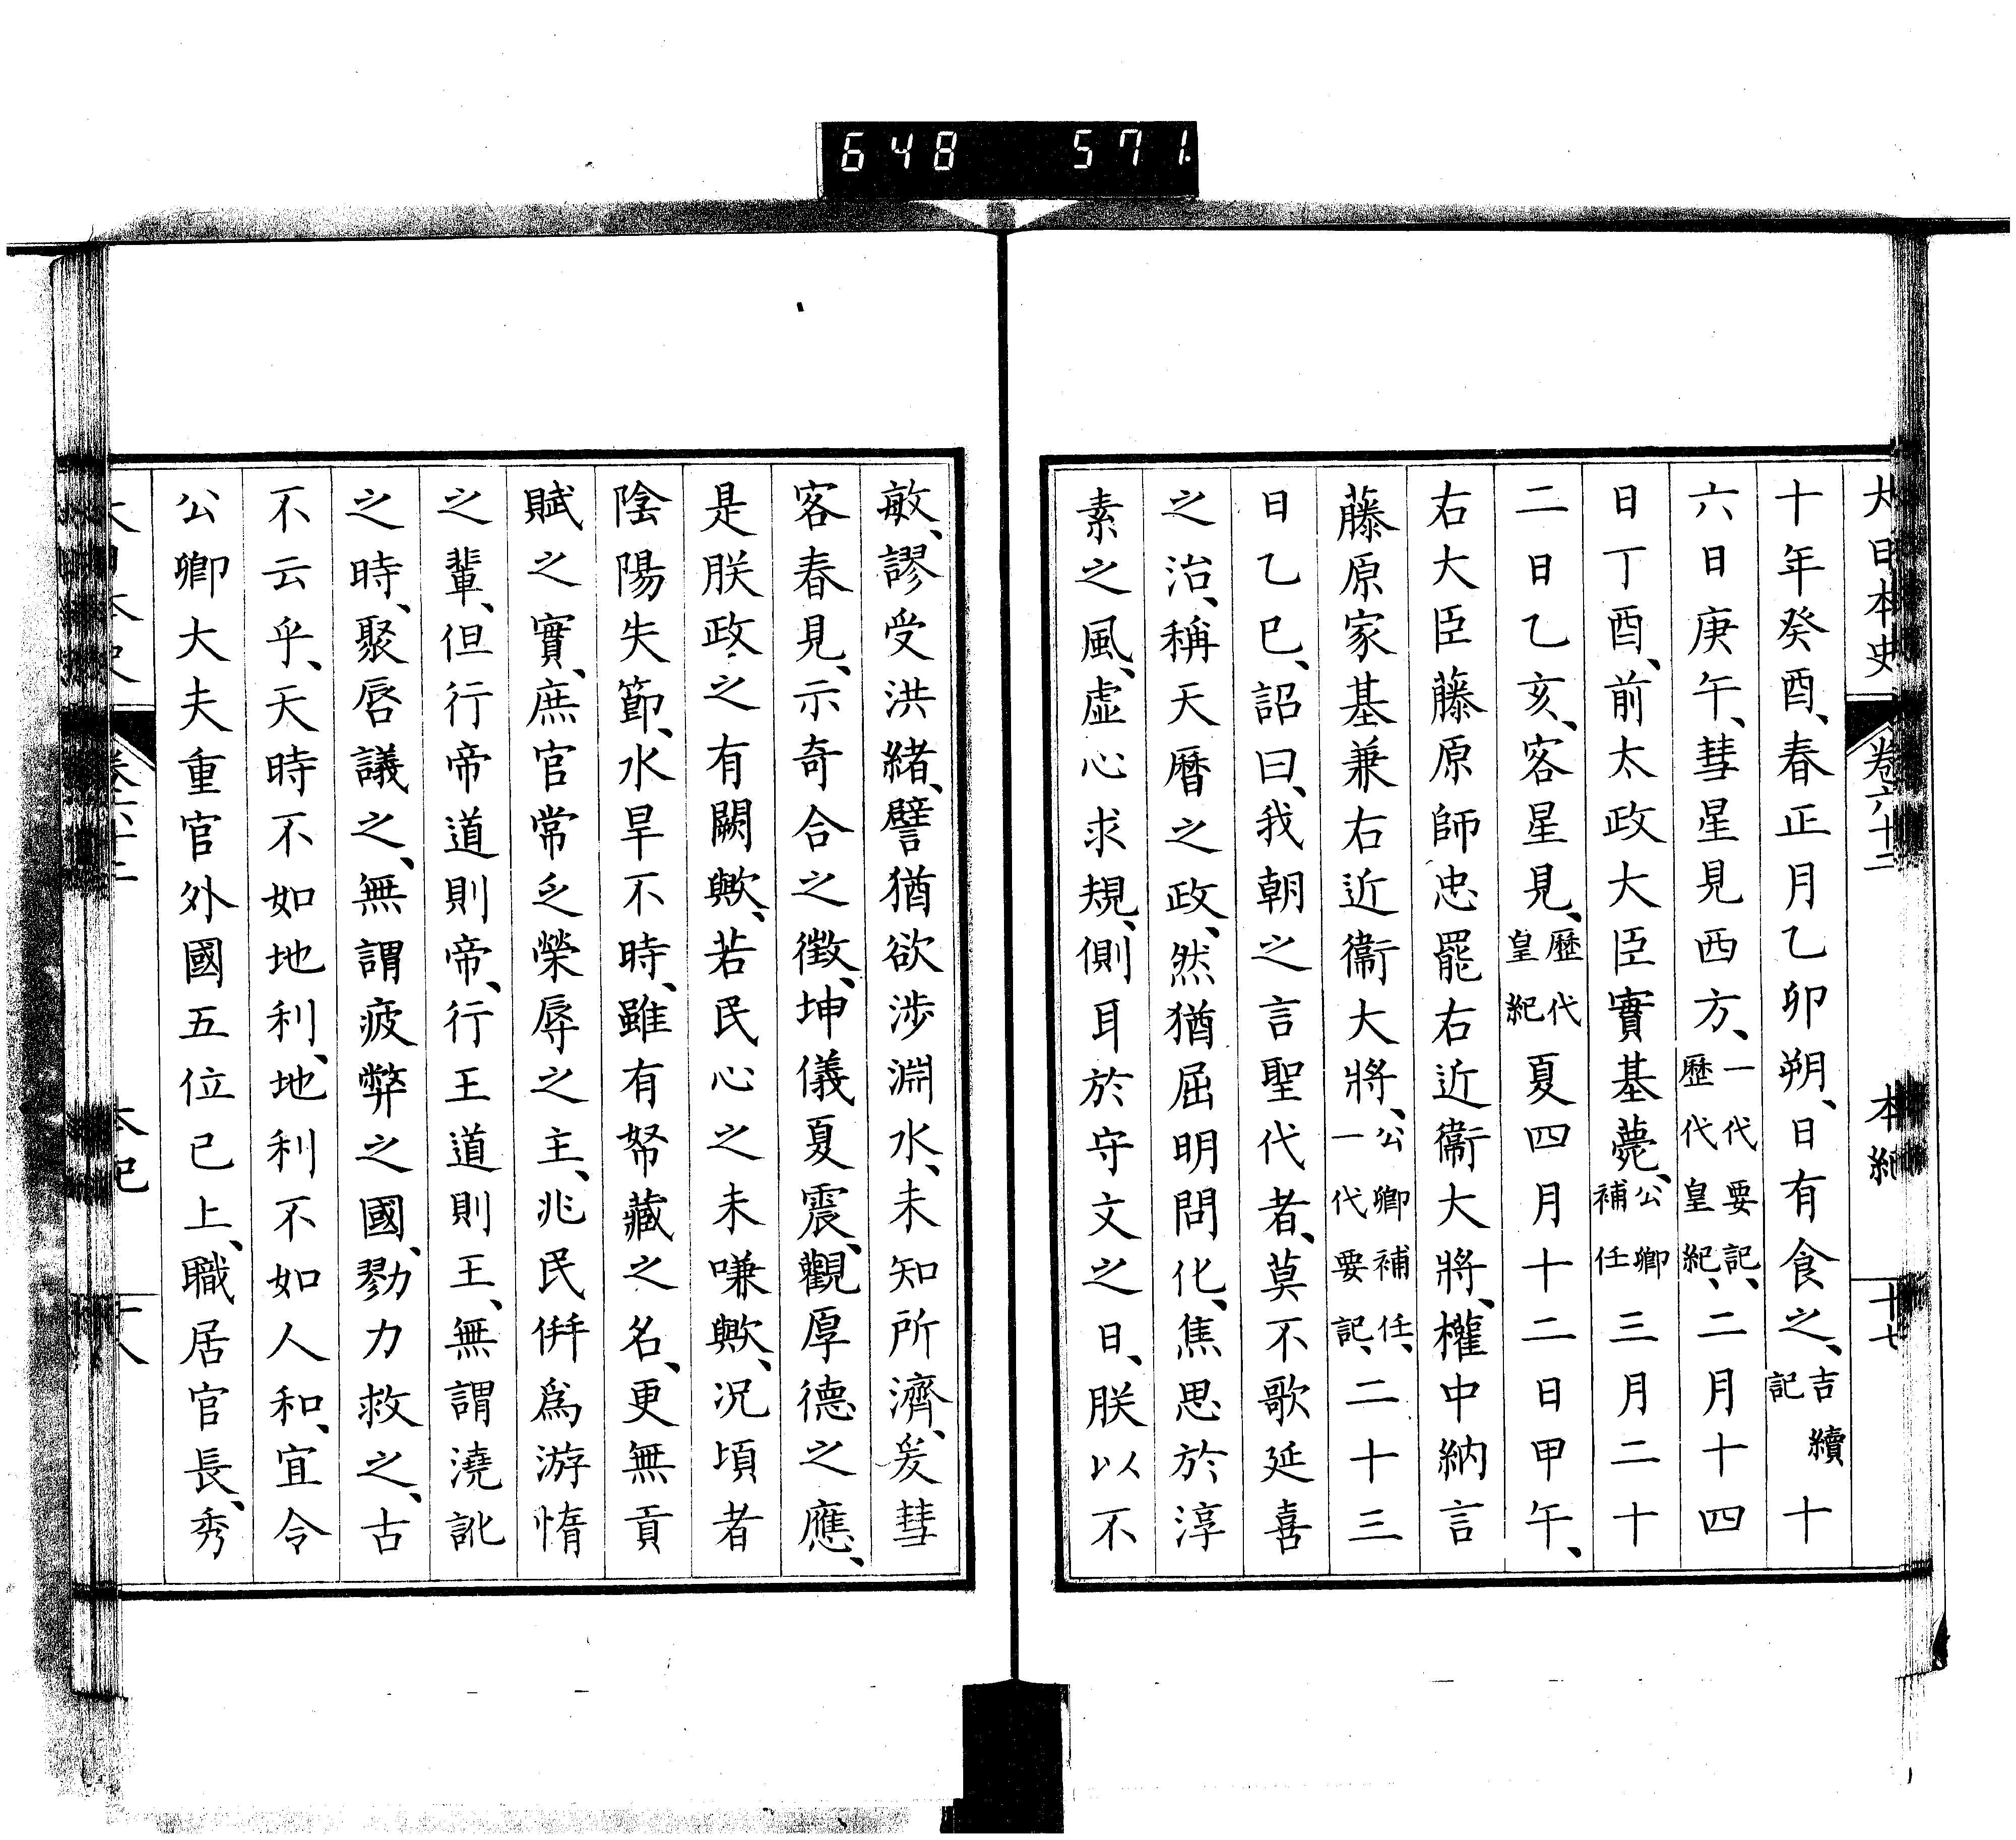 648 571
大日本史 卷六十二 本紀 十七
十年癸酉、春正月乙卯朔、日有食之、吉續記 十
六日庚午、彗星見西方、一代要記、歷代皇紀、二月十四
日丁酉、前太政大臣實基薨、公卿補任三月二十
二日乙亥、客星見、歷代皇紀夏四月十二日甲午、
右大臣藤原師忠罷右近衞大將、權中納言
藤原家基兼右近衞大將、公卿補任、一代要記、二十三
日乙巳、詔曰、我朝之言聖代者、莫不歌延喜
之治、稱天曆之政、然猶屈明問化、焦思於淳
素之風、虛心求規、側耳於守文之日、朕以不
敏、謬受洪緒、譬猶欲涉淵水、未知所濟、爰彗
客春見、示奇合之徵、坤儀夏震、觀厚德之應、
是朕政之有闕歟、若民心之未嗛歟、况頃者
陰陽失節、水旱不時、雖有帑藏之名、更無貢
賦之實、庶官常乏榮辱之主、兆民併爲游惰
之輩、但行帝道則帝、行王道則王、無謂澆訛
之時、聚唇議之、無謂疲弊之國、勠力救之、古
不云乎、天時不如地利、地利不如人和、宜令
公卿大夫重官外國五位已上、職居官長、秀